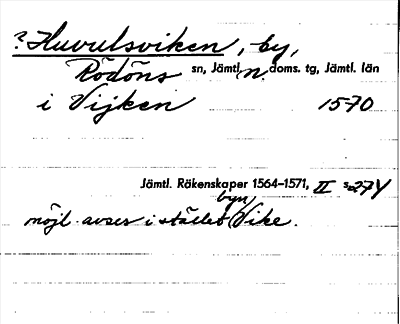 ? Huvulsviken, by,
Rödöns sn, Jämtl. n. doms. tg, Jämtl. län
i Vijken 1570
Jämtl. Räkenskaper 1564–1571, II s. 274
byn
möjl. avses i stället Vike.